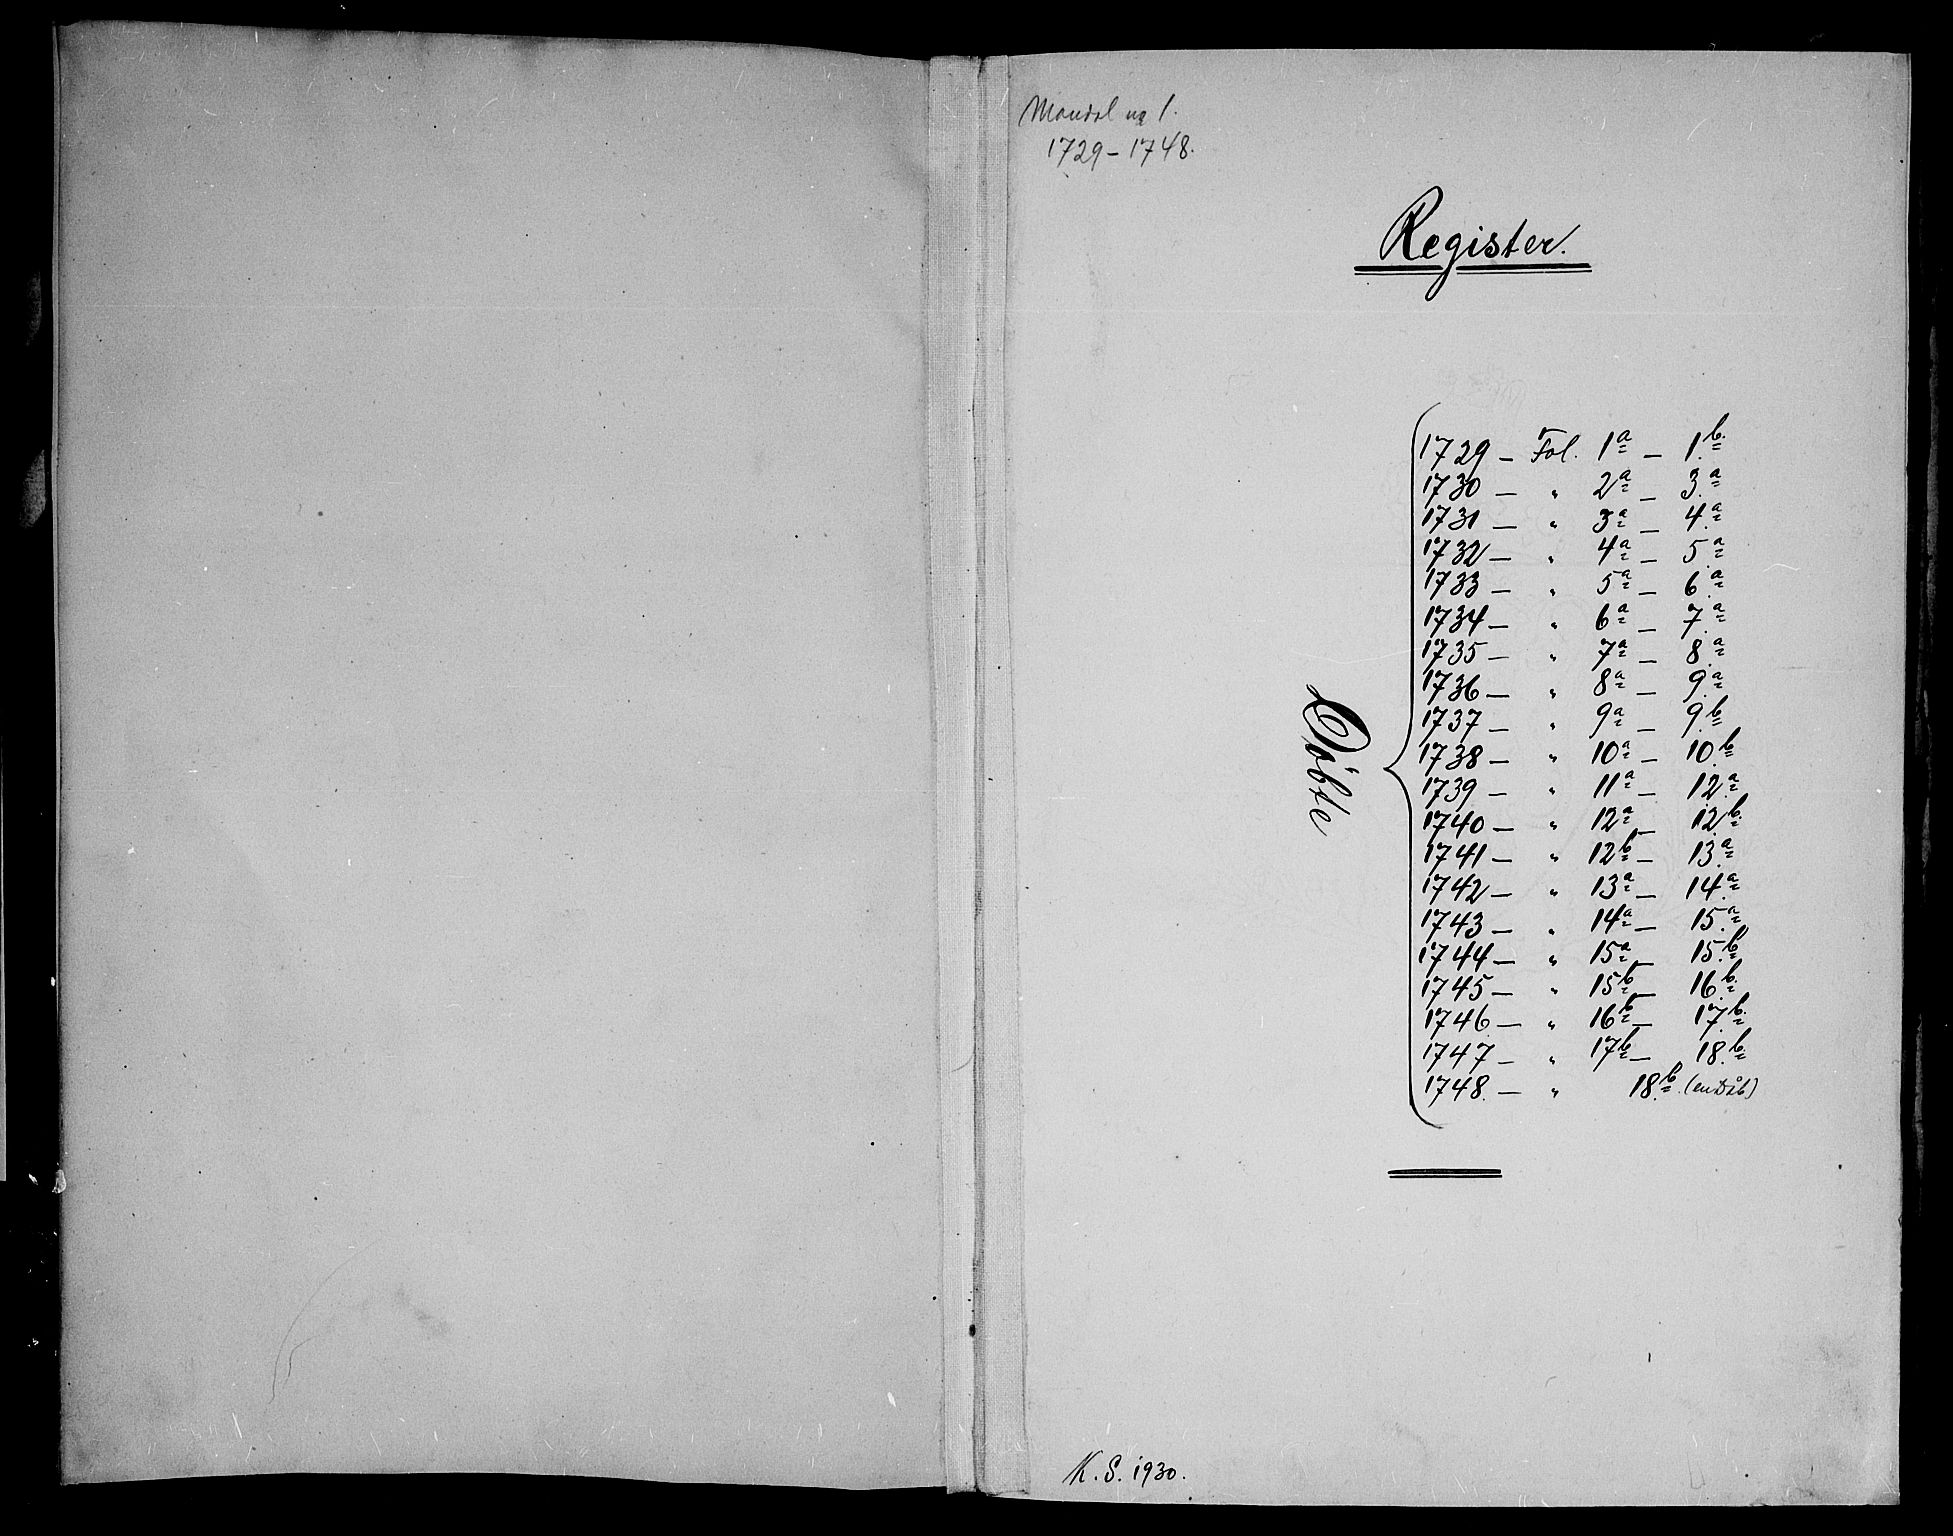 Mandal nr 1.
1729 - 1748.
Register.
Døbte
1729 - Fol. 1a - 1b.
1730 - " 2a - 3.a
1731 - " 3a - 4.a
1732 - " 4a - 5.a
1733 - " 5a - 6.a
1734 - " 6a - 7.a
1735 - " 7a - 8.a
1736 - " 8a - 9.a
1737 - " 9a - 9.b
1738 - " 10a - 10.b
1739 - " 11a - 12.a
1740 - " 12a - 12.b
1741 - " 12b - 13.a
1742 - " 13a - 14.a
1743 - " 14a - 15.a
1744 - " 15a - 15.b
1745 - " 15b - 16.b
1746 - " 16b - 17.b
1747 - " 17b - 18.b
1748. - " 18.b (en Dåb)
K. S. 1930.